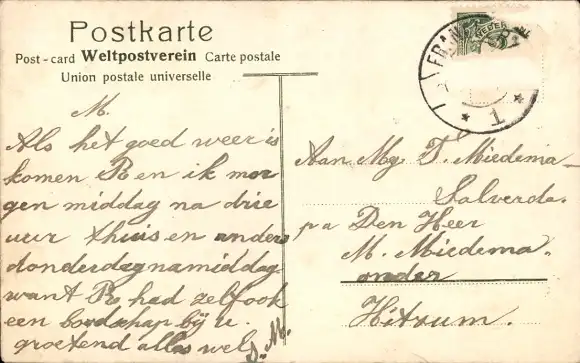 Postkarte
Post-card Weltpostverein Carte postale
Union postale universelle
M.
Als het goed weer is
komen R en ik mor
gen middag na drie
uur thuis en anders
donderdagnamiddag
want R. had zelf ook
een boodschap bij u.
groetend alles wel
J. M.
FRAN
NEDER
1
Aan Mej. T. Miedema
Salverda.
p a Den Heer
M. Miedema.
onder
Hitzum.